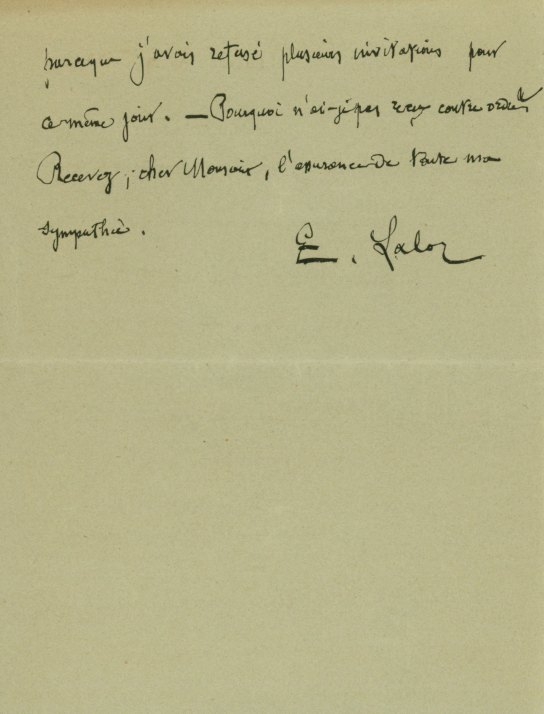 parceque j'avais refusé plusieurs invitations pour
ce même jour. — Pourquoi n'ai-je pas reçu contre ordre?
Recevez, cher Monsieur, l'assurance de toute ma
sympathie.
E. Lalo